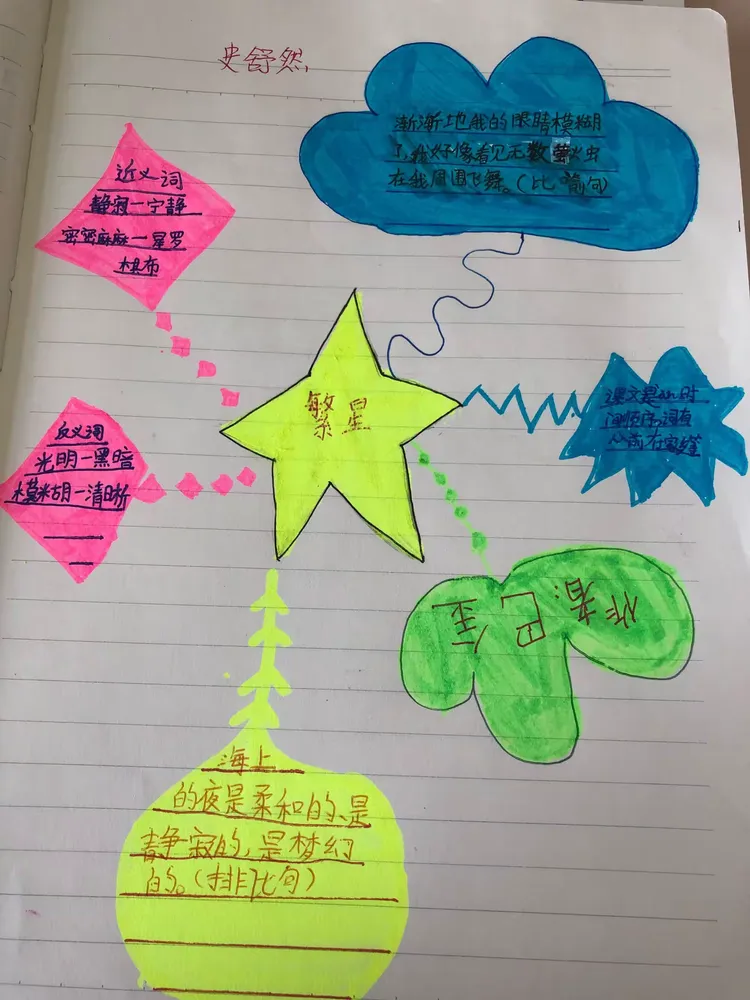 史舒然
渐渐地我的眼睛模糊
了,我好像看见无数萤火虫
在我周围飞舞。(比喻句)
近义词
静寂一宁静
密密麻麻一星罗
棋布
繁星
课文是以时
间顺序词有
从前在家
反义词
光明一黑暗
模糊一清晰
作者:巴金
海上
的夜是柔和的、是
静寂的,是梦幻
的。(排比句)